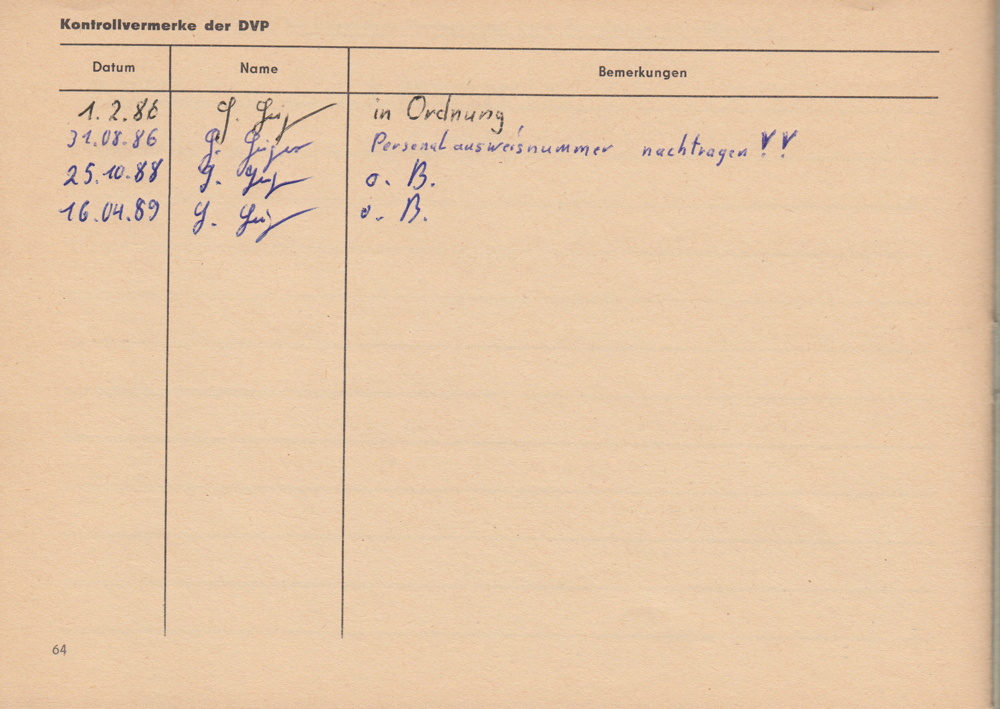 Kontrollvermerke der DVP
Datum Name Bemerkungen
1. 2. 86 in Ordnung
31.08.86 Personalausweisnummer nachtragen !!
25.10.88 o. B.
16.04.89 o. B.
64